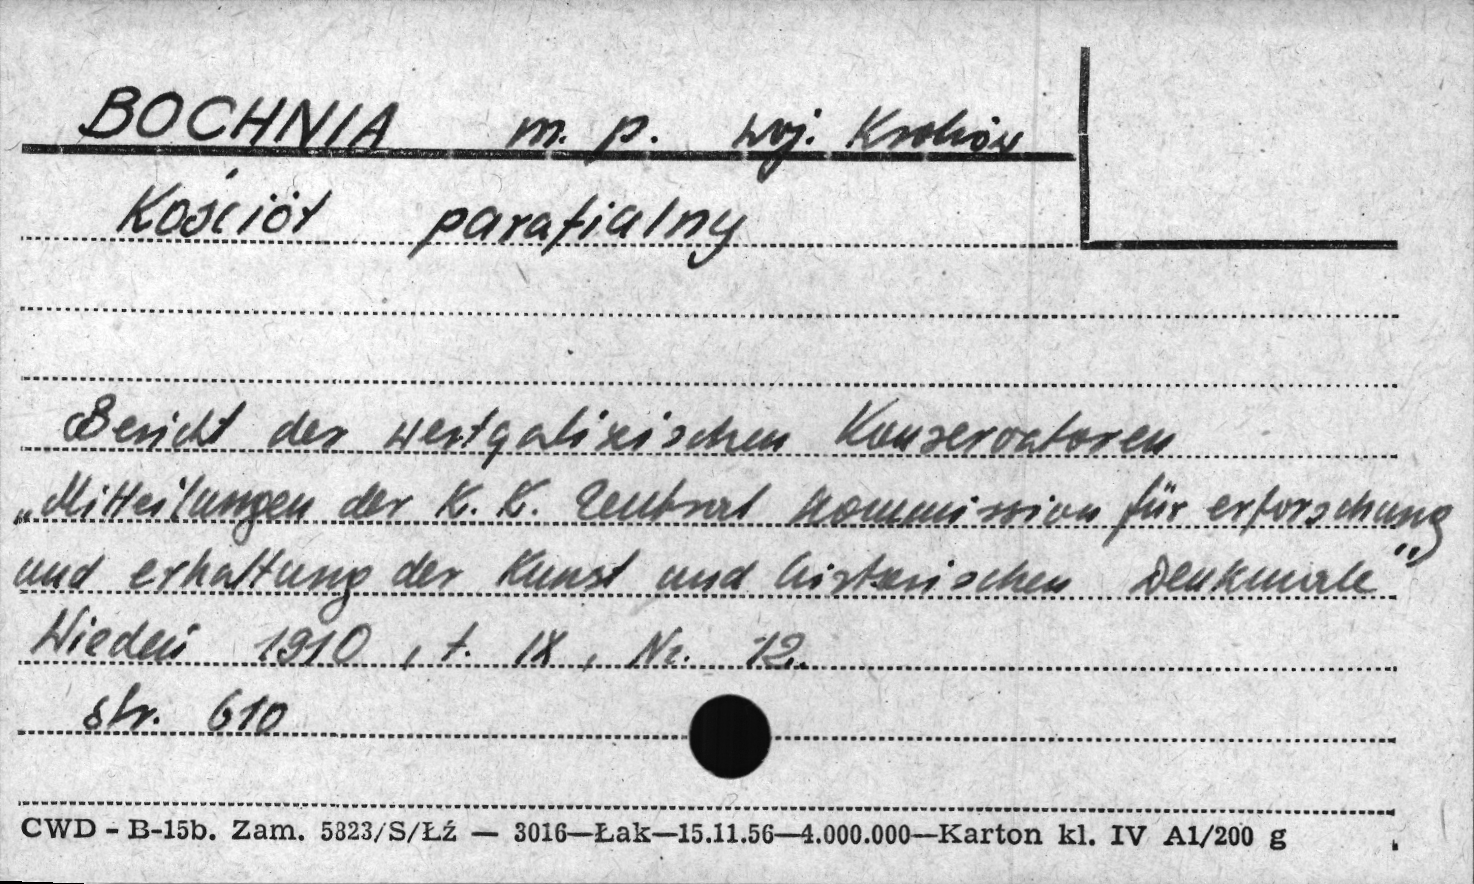 BOCHNIA m. p. woj. Kraków
Kościół parafialny
Bericht der westgalizischen Konservatoren
„Mitteilungen der K. K. Zentral Kommission für erforschung
und erhaltung der Kunst und historischen Denkmale"
Wiedeń 1910, t. IX, Nr. 12.
str. 610
CWD - B-15b. Zam. 5823/S/Łź — 3016—Łak—15.11.56—4.000.000—Karton kl. IV A1/200 g